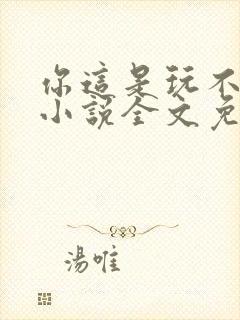 你這是玩不
小說全文免
湯唯